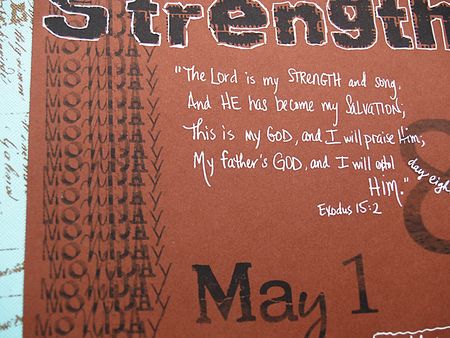 Strength
"The Lord is my STRENGTH and song,
And HE has become my SALVATION;
This is my GOD, and I will praise Him;
My father's GOD, and I will extol
Him."
Exodus 15:2
day eigh
8
May 1
MONDAY
MONDAY
MONDAY
MONDAY
MONDAY
MONDAY
MONDAY
MONDAY
MONDAY
MONDAY
MONDAY
MONDAY
MONDAY
MONDAY
MONDAY